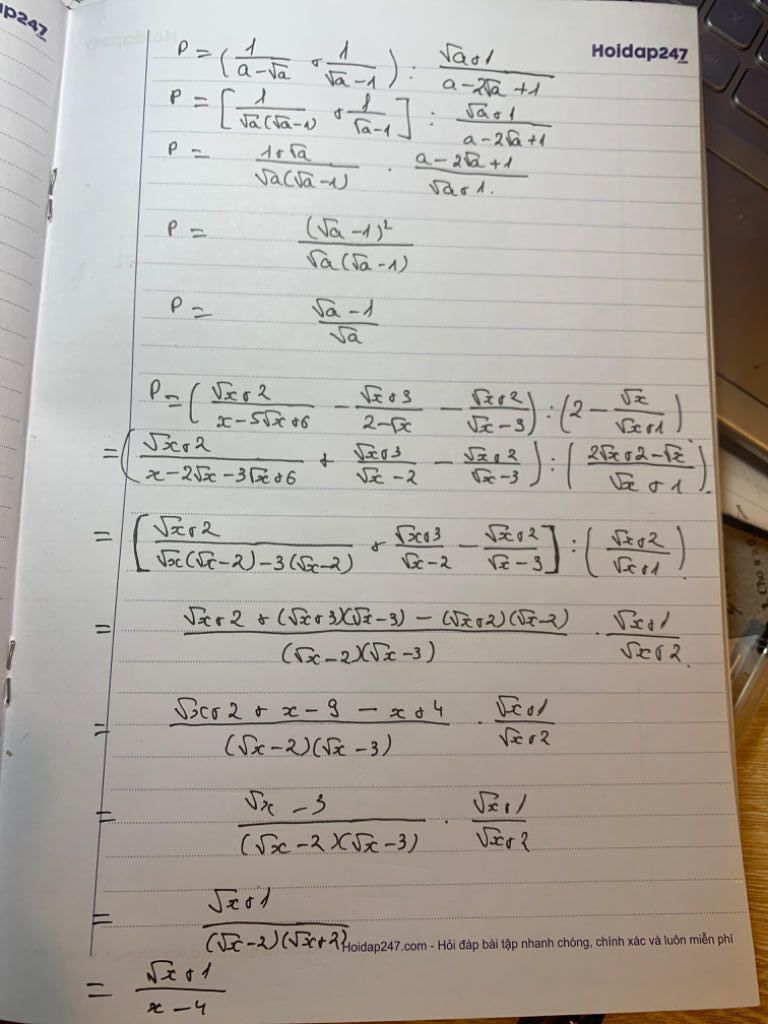 ap247
Hoidap247
P = (1/(a-√a) + 1/(√a-1)) : (√a+1)/(a-2√a+1)
P = [1/(√a(√a-1)) + 1/(√a-1)] : (√a+1)/(a-2√a+1)
P = (1+√a)/(√a(√a-1)) . (a-2√a+1)/(√a+1).
P = (√a-1)²/(√a(√a-1))
P = (√a-1)/√a
P = ((√x+2)/(x-5√x+6) - (√x+3)/(2-√x) - (√x+2)/(√x-3)) : (2 - √x/(√x+1))
= ((√x+2)/(x-2√x-3√x+6) + (√x+3)/(√x-2) - (√x+2)/(√x-3)) : ((2√x+2-√x)/(√x+1)).
= [(√x+2)/(√x(√x-2)-3(√x-2)) + (√x+3)/(√x-2) - (√x+2)/(√x-3)] : ((√x+2)/(√x+1))
= (√x+2+(√x+3)(√x-3)-(√x+2)(√x-2))/((√x-2)(√x-3)) . (√x+1)/(√x+2).
= (√x+2+x-9-x+4)/((√x-2)(√x-3)) . (√x+1)/(√x+2)
= (√x-3)/((√x-2)(√x-3)) . (√x+1)/(√x+2)
= (√x+1)/((√x-2)(√x+2))
Hoidap247.com - Hỏi đáp bài tập nhanh chóng, chính xác và luôn miễn phí
= (√x+1)/(x-4)